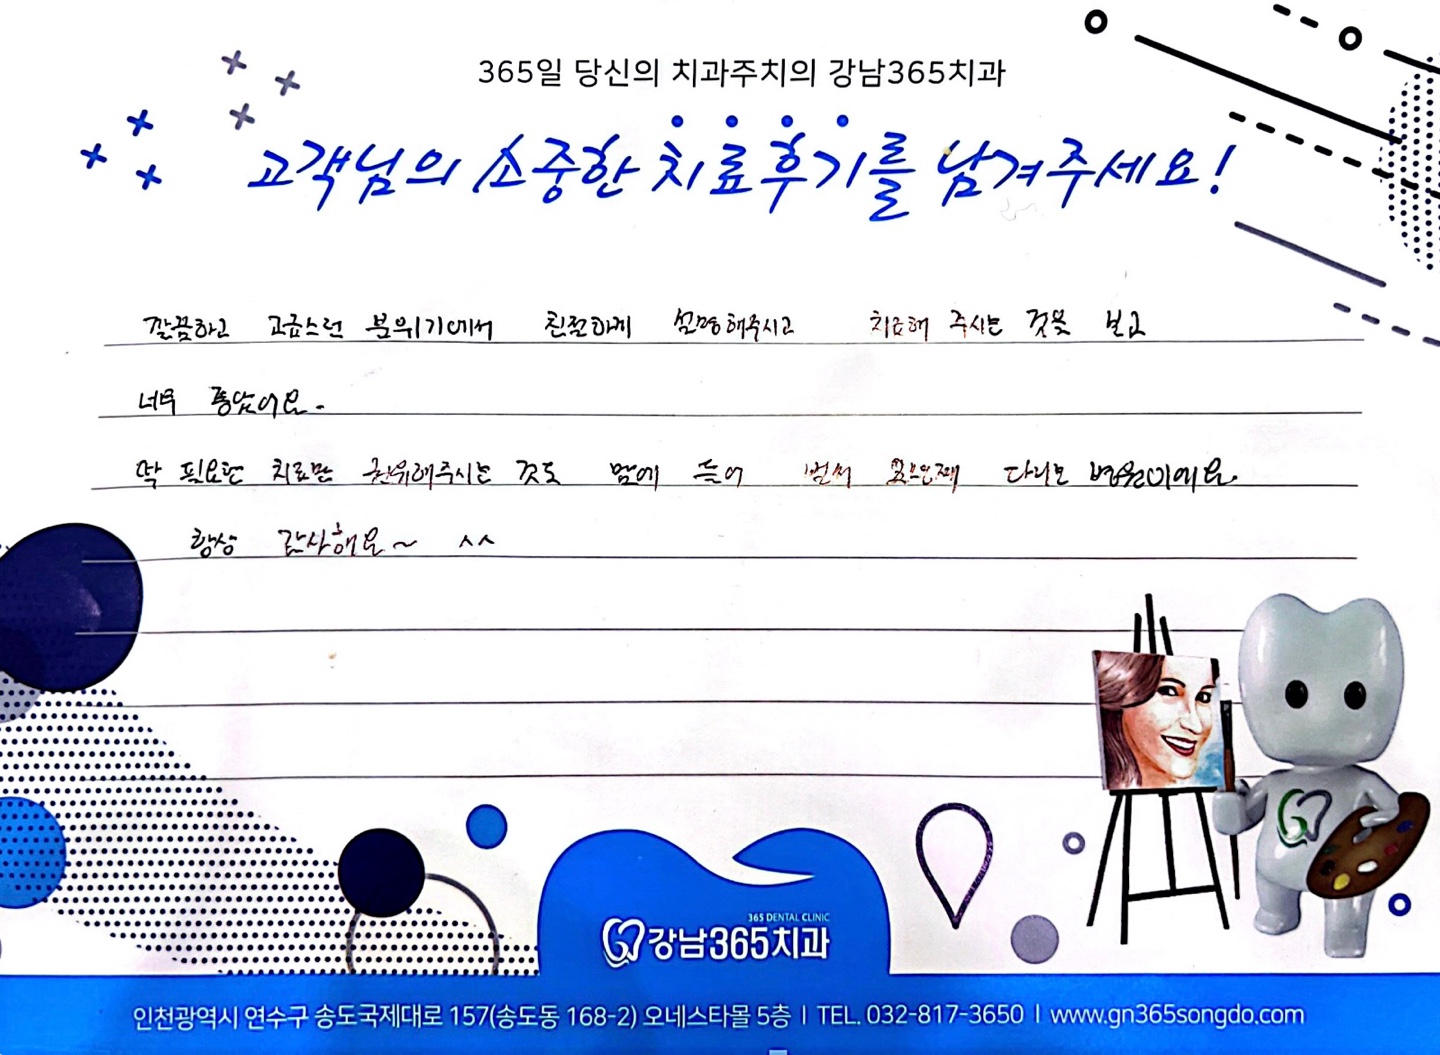 365일 당신의 치과주치의 강남365치과
고객님의 소중한 치료후기를 남겨주세요!
깔끔하고 고급스런 분위기에서 친절하게 설명해주시고 치료해 주시는 것을 보고
너무 좋았어요.
딱 필요한 치료만 권유해주시는 것도 맘에 들어 벌써 다니는 병원이에요.
항상 감사해요~ ^^
365 DENTAL CLINIC
강남365치과
인천광역시 연수구 송도국제대로 157(송도동 168-2) 오네스타몰 5층 | TEL. 032-817-3650 | www.gn365songdo.com